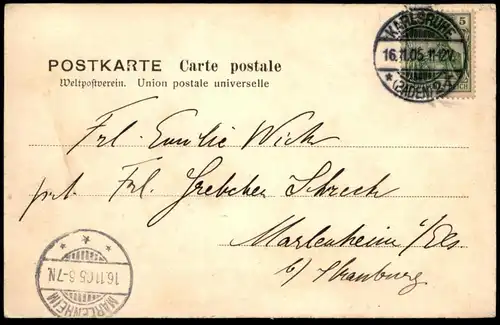 POSTKARTE Carte postale
Weltpostverein. Union postale universelle
KARLSRUHE
16.11.05.11-12V.
(BADEN) 2
5
Frl. Emilie Wick
Frl. Gretchen Schreck
Marlenheim i/Els
b/ Strassburg
16.11.05.6-7N.
MARLENHEIM